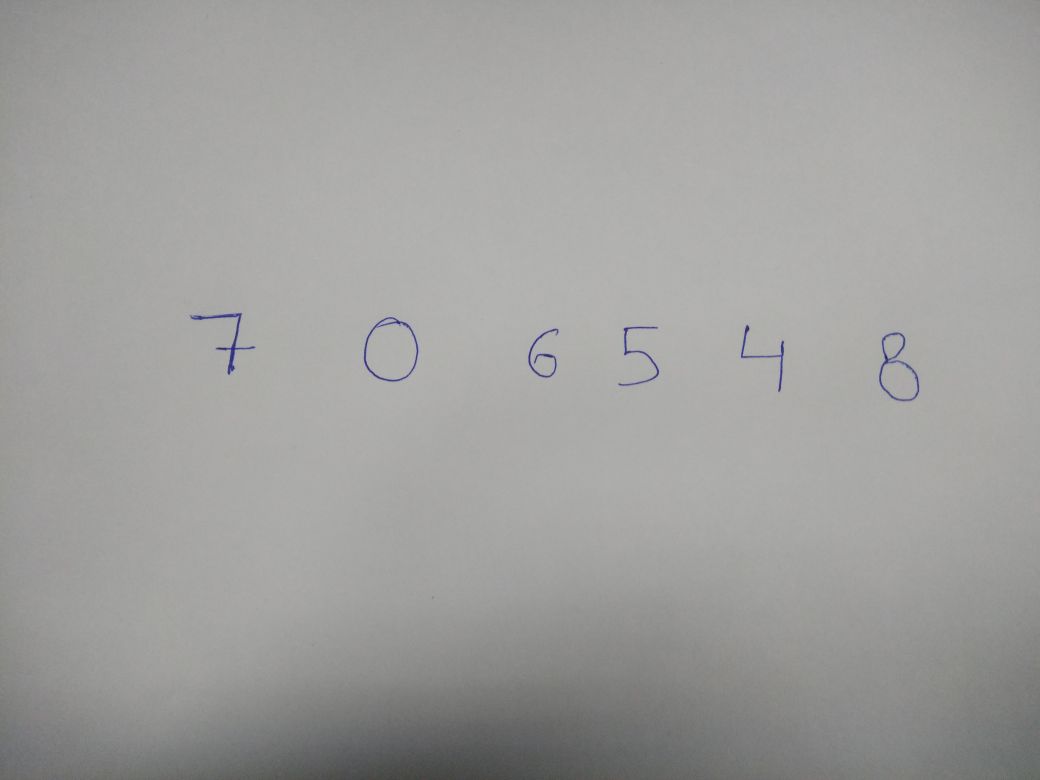 7 0 6 5 4 8